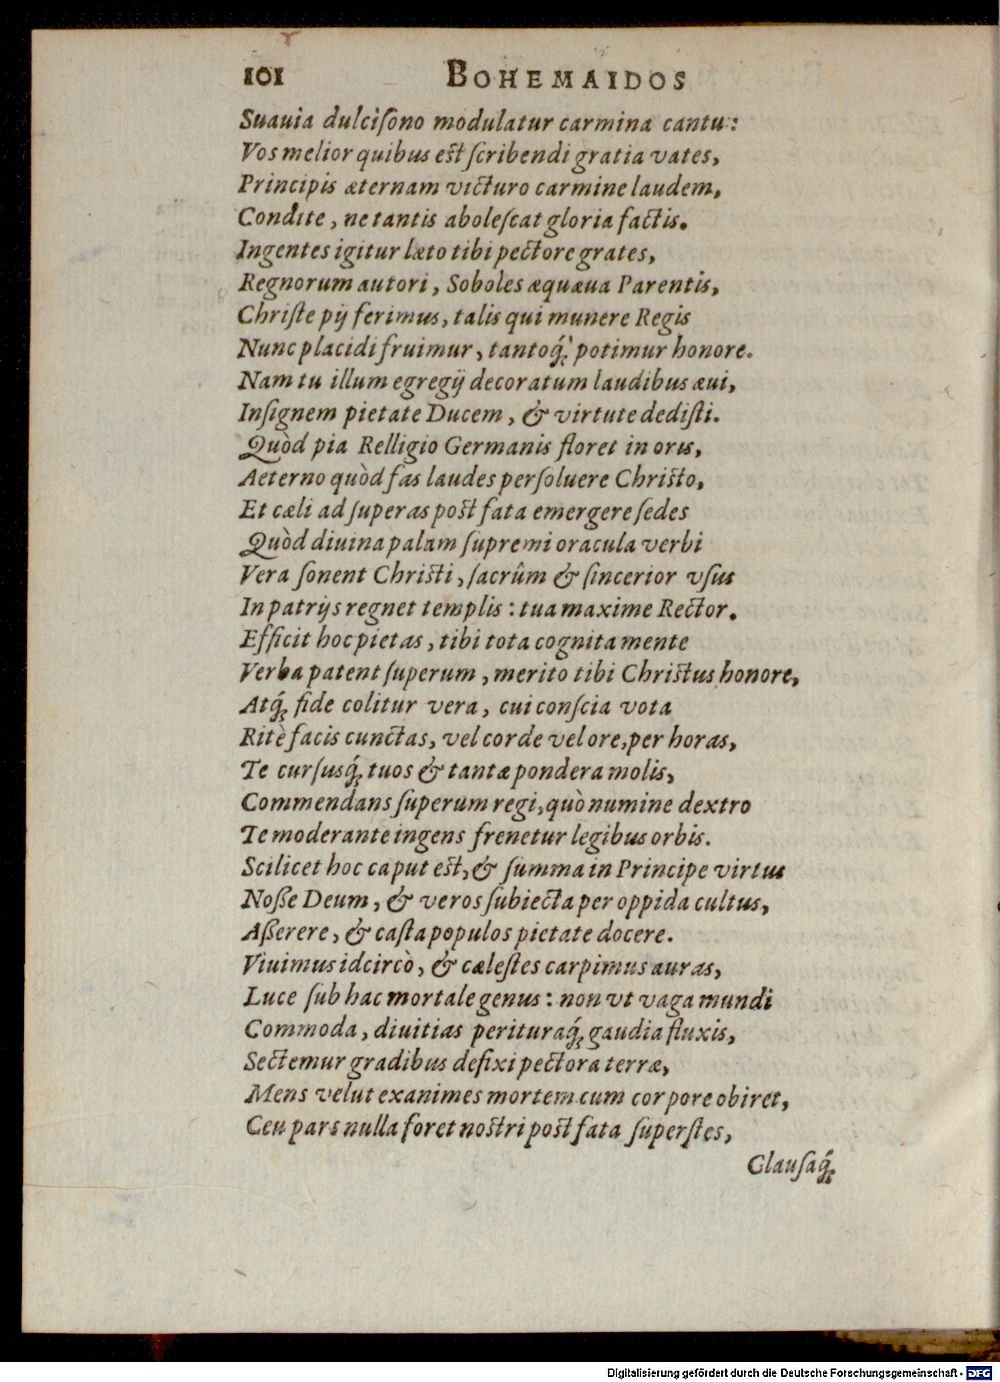 101 BOHEMAIDOS
Suauia dulciſono modulatur carmina cantu:
Vos melior quibus est ſcribendi gratia vates,
Principis æternam victuro carmine laudem,
Condite, ne tantis aboleſcat gloria factis.
Ingentes igitur læto tibi pectore grates,
Regnorum autori, Soboles æquæua Parentis,
Chriſte pij ferimus, talis qui munere Regis
Nunc placidi fruimur, tantoq́; potimur honore.
Nam tu illum egregij decoratum laudibus æui,
Inſignem pietate Ducem, & virtute dediſti.
Quòd pia Relligio Germanis floret in oris,
Aeterno quòd fas laudes perſoluere Christo,
Et cæli ad ſuperas post fata emergere ſedes
Quòd diuina palam ſupremi oracula verbi
Vera ſonent Christi, ſacrûm & ſincerior vſus
In patrijs regnet templis: tua maxime Rector.
Efficit hoc pietas, tibi tota cognita mente
Verba patent ſuperum, merito tibi Christus honore,
Atq́; fide colitur vera, cui conſcia vota
Ritè facis cunctas, vel corde vel ore, per horas,
Te curſusq́; tuos & tantæ pondera molis,
Commendans ſuperum regi, quò numine dextro
Te moderante ingens frenetur legibus orbis.
Scilicet hoc caput est, & ſumma in Principe virtus
Noße Deum, & veros ſubiecta per oppida cultus,
Aßerere, & caſta populos pietate docere.
Viuimus idcircò, & cæleſtes carpimus auras,
Luce ſub hac mortale genus: non vt vaga mundi
Commoda, diuitias perituraq́; gaudia fluxis,
Sectemur gradibus defixi pectora terræ,
Mens velut exanimes mortem cum corpore obiret,
Ceu pars nulla foret nostri post fata ſuperſtes,
Clauſaq́;
Digitalisierung gefördert durch die Deutsche Forschungsgemeinschaft - DFG